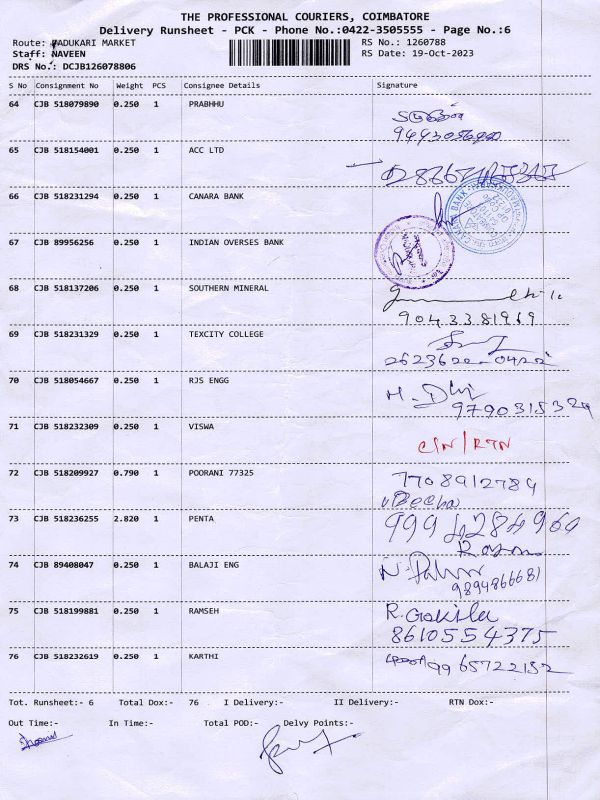 THE PROFESSIONAL COURIERS, COIMBATORE
Delivery Runsheet - PCK - Phone No.:0422-3505555 - Page No.:6
Route: PADUKARI MARKET RS No.: 1260788
Staff: NAVEEN RS Date: 19-Oct-2023
DRS No.: DCJB126078806
S No Consignment No Weight PCS Consignee Details Signature
64 CJB 518079890 0.250 1 PRABHHU
65 CJB 518154001 0.250 1 ACC LTD
66 CJB 518231294 0.250 1 CANARA BANK
67 CJB 89956256 0.250 1 INDIAN OVERSES BANK
68 CJB 518137206 0.250 1 SOUTHERN MINERAL
9043381969
69 CJB 518231329 0.250 1 TEXCITY COLLEGE
2623620-0422
70 CJB 518054667 0.250 1 RJS ENGG
9790315324
71 CJB 518232309 0.250 1 VISWA
C/N/RTN
72 CJB 518209927 0.790 1 POORANI 77325
7708912784
73 CJB 518236255 2.820 1 PENTA
9994284960
74 CJB 89408047 0.250 1 BALAJI ENG
9894866681
75 CJB 518199881 0.250 1 RAMSEH
R. Gokila
8610554375
76 CJB 518232619 0.250 1 KARTHI
9965722152
Tot. Runsheet:- 6 Total Dox:- 76 I Delivery:- II Delivery:- RTN Dox:-
Out Time:- In Time:- Total POD:- Delvy Points:-